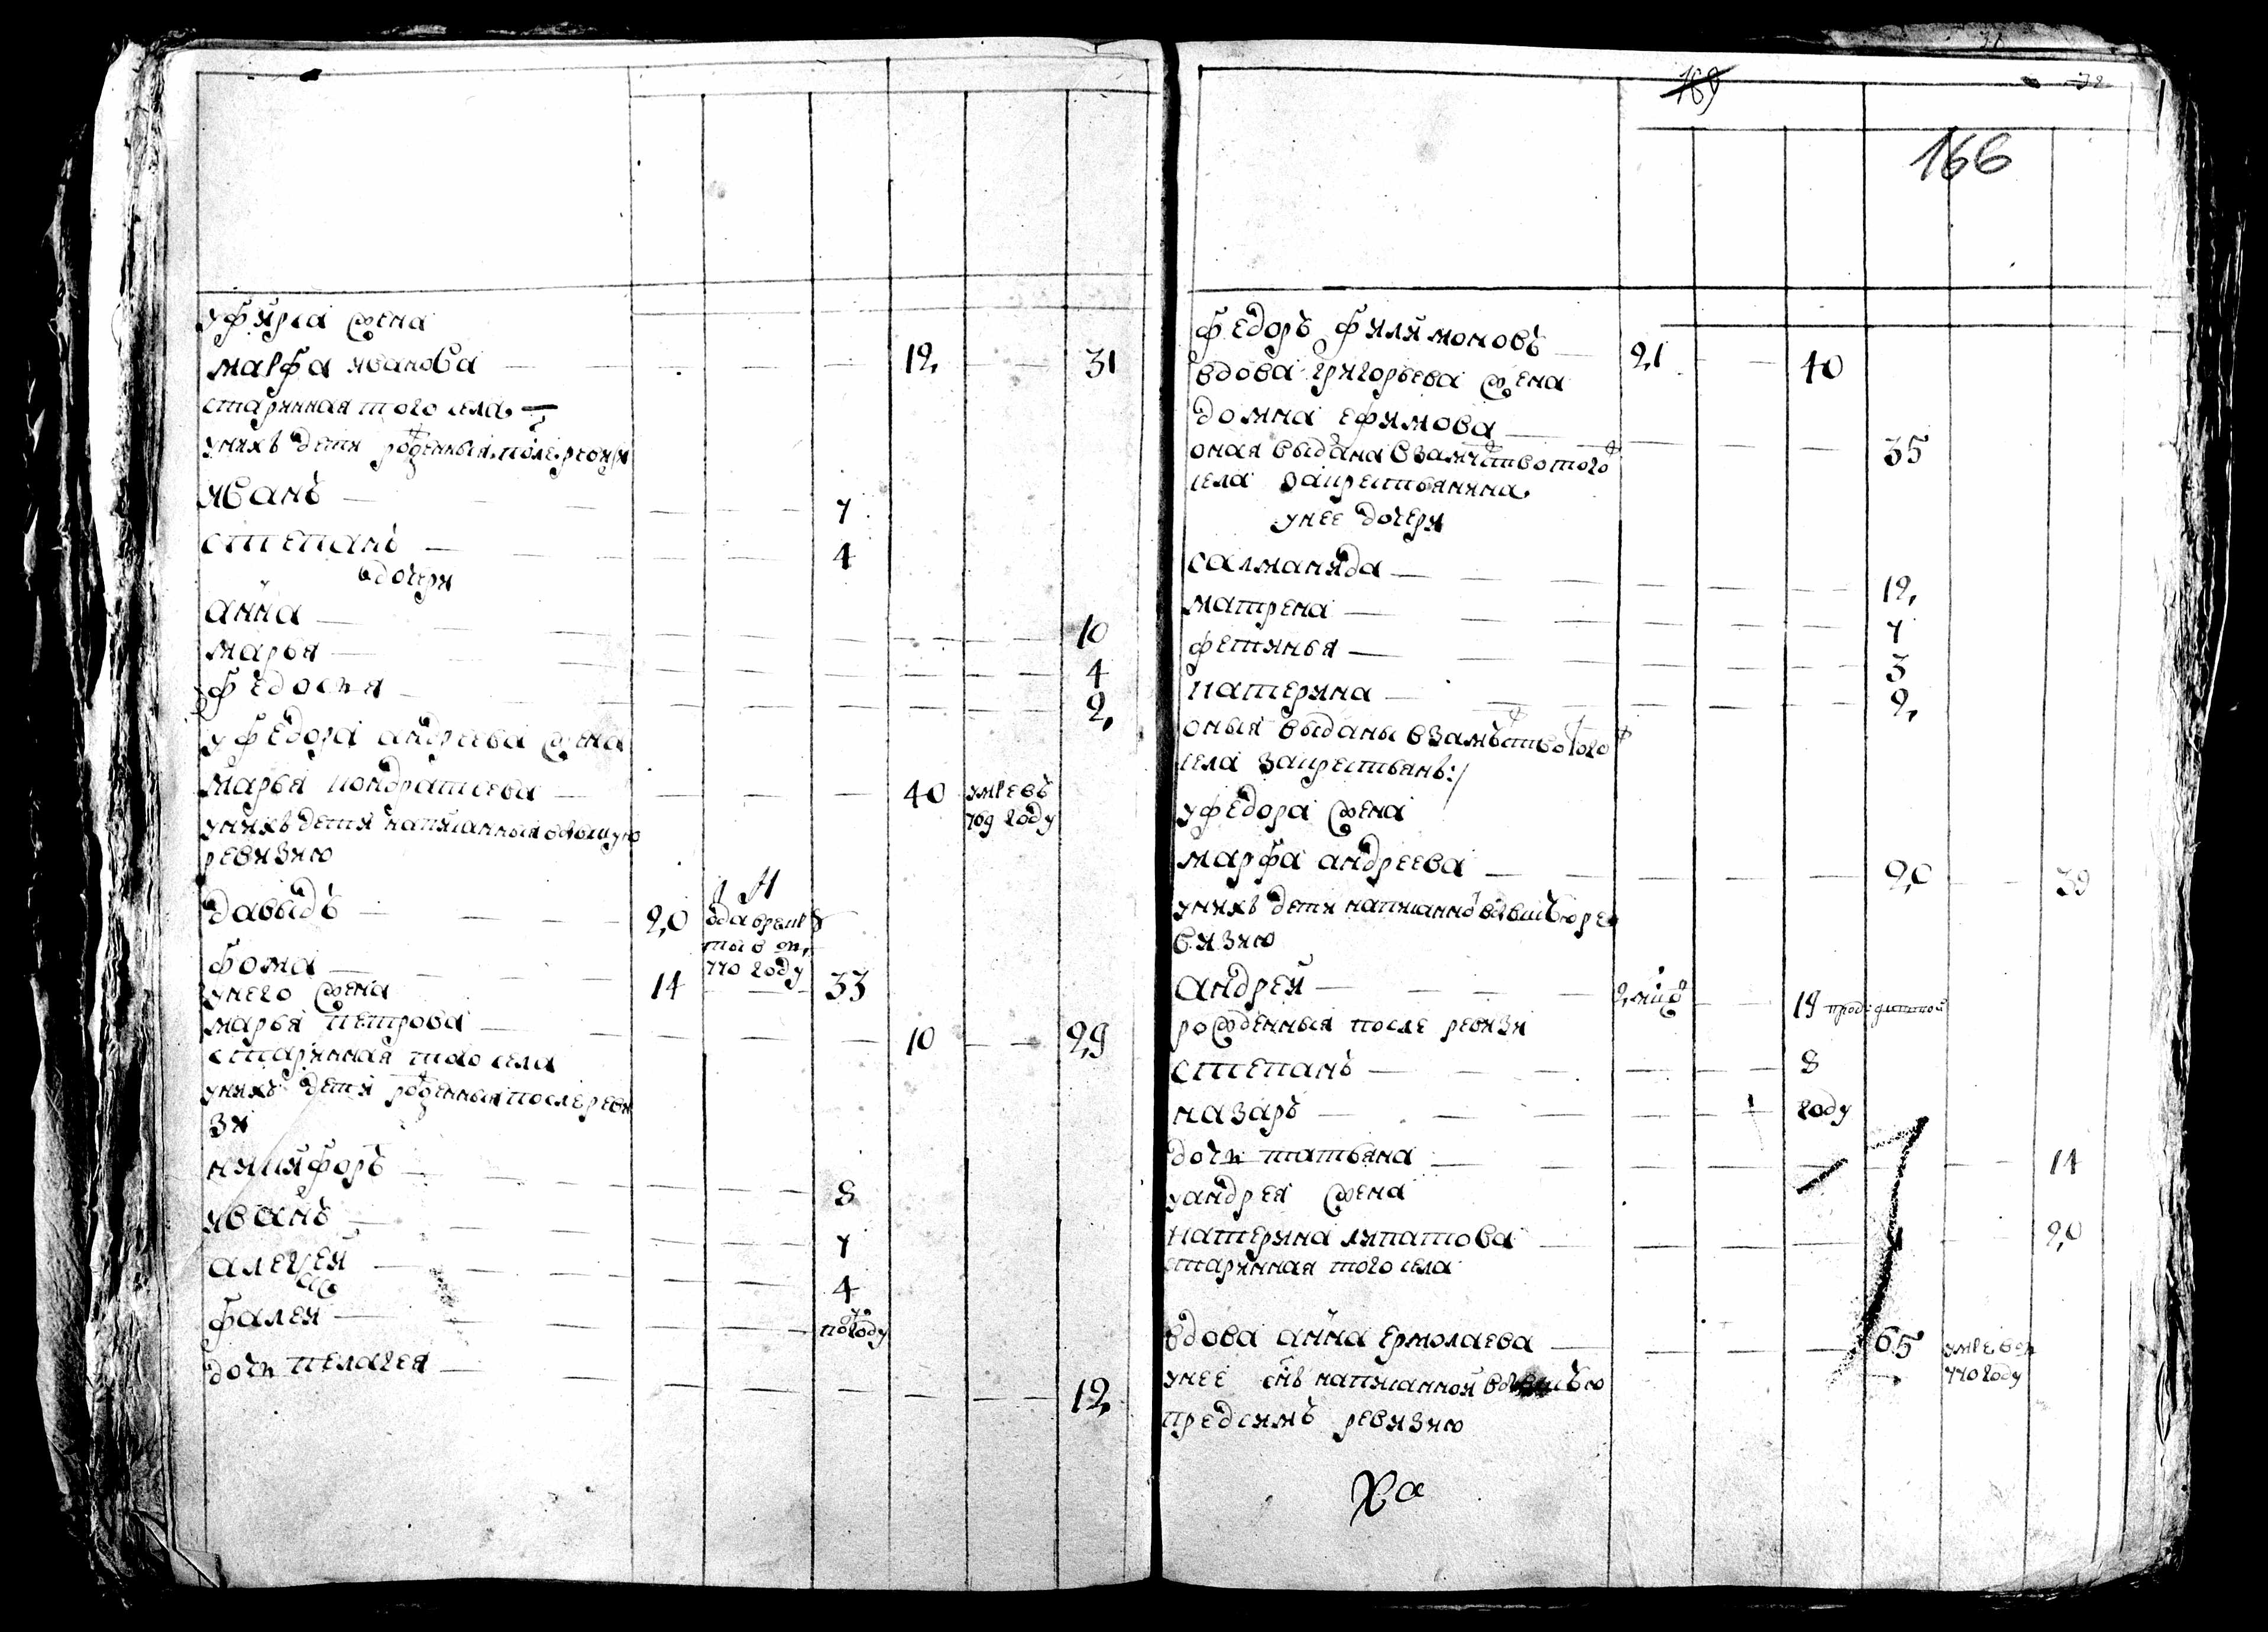 у фирса жена
марфа иванова 12 31
старинная того села
у них детй рожденныя после ревизи
иванъ 7
степанъ 4
дочери
анна 10
марья 4
федосья 2
у федора андреева жена
марья кондратьева 40 умре въ
769 году
у нихъ детй написанныя в бывшую
ревизию
давыдъ 20
770 году
фома 14 33
у него жена
марья петрова 10 29
старинная того села
у нихъ детй рожденныя после реви
зи
никифоръ 8
иванъ 7
алексей 4
фалей полгоду
дочь пелагея 12
169
166
федоръ филимоновъ 21 40
вдова григорьева жена
домна ефимова 35
оная выдана в замужство того
села за крестьянина
у нее дочери
салманида 12
матрена 7
фетинья 3
катерина 2
оныя выданы в замужство того
села за крестьянъ:/
у федора жена
марфа андреева 20 39
у нихъ дети написанной в бывшую ре
визию
андрей 19
рожденныя после ревизи
степанъ 8
назаръ году
дочь татьяна 14
у андрея жена
катерина липатова 20
старинная того села
вдова анна ермолаева 65 умре в
770 году
у нее снъ написанной в бывшую
пред симъ ревизию